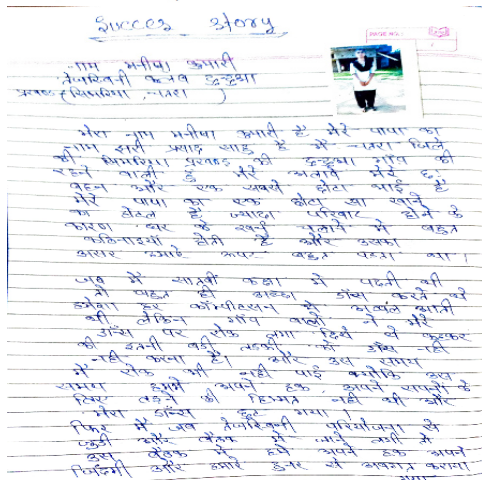 Success Story
PAGE NO.:
नाम मनीषा कुमारी
तेजस्विनी क्लब
प्रखंड (सिमरिया, चतरा)
मेरा नाम मनीषा कुमारी है मेरे पापा का
नाम प्रसाद साहु है मैं चतरा जिले
की सिमरिया प्रखण्ड की गाँव की
रहने वाली हुँ मेरे अलावे मेरे छः
बहन और एक सबसे छोटा भाई है
मेरे पापा का एक छोटा सा खाने
का होटल है ज्यादा परिवार होने के
कारण घर के खर्च चलाने में बहुत
कठिनाइयाँ होती है और उसका
असर हमारे ऊपर बहुत पड़ता था।
जब मैं सातवीं कक्षा में पढ़ती थी
तो बहुत ही अच्छा डाँस करती थी
हमेशा हर में अव्वल आती
थी लेकिन गाँव वालों ने मेरे
डाँन्स पर रोक लगा दिये ये कहकर
की इतनी बड़ी लड़की को डाँस नहीं
नहीं करना है। और उस समय
मैं रोक भी नहीं पाई क्योंकि उस
समय हममे अपने हक अपने सपनों के
लिए लड़ने की हिम्मत नहीं थी और
मेरा डाँन्स छुट गया।
फिर मैं जब तेजस्विनी परियोजना से
जुड़ी और बैठक में जाने लगी तो
उस बैठक में हमें अपने हक अपने
जिंदगी और हमारे हुनर से अवगत कराया
गया